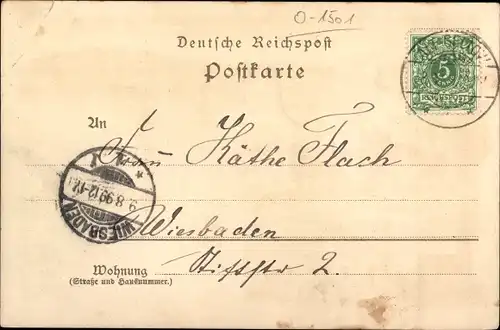 O-1501
Deutsche Reichspost
Postkarte
5
An
Frau Käthe Flach
WIESBADEN
9.8.99. 12-1
Wiesbaden
Wohnung
(Straße und Hausnummer.)
Stiftstr 2.